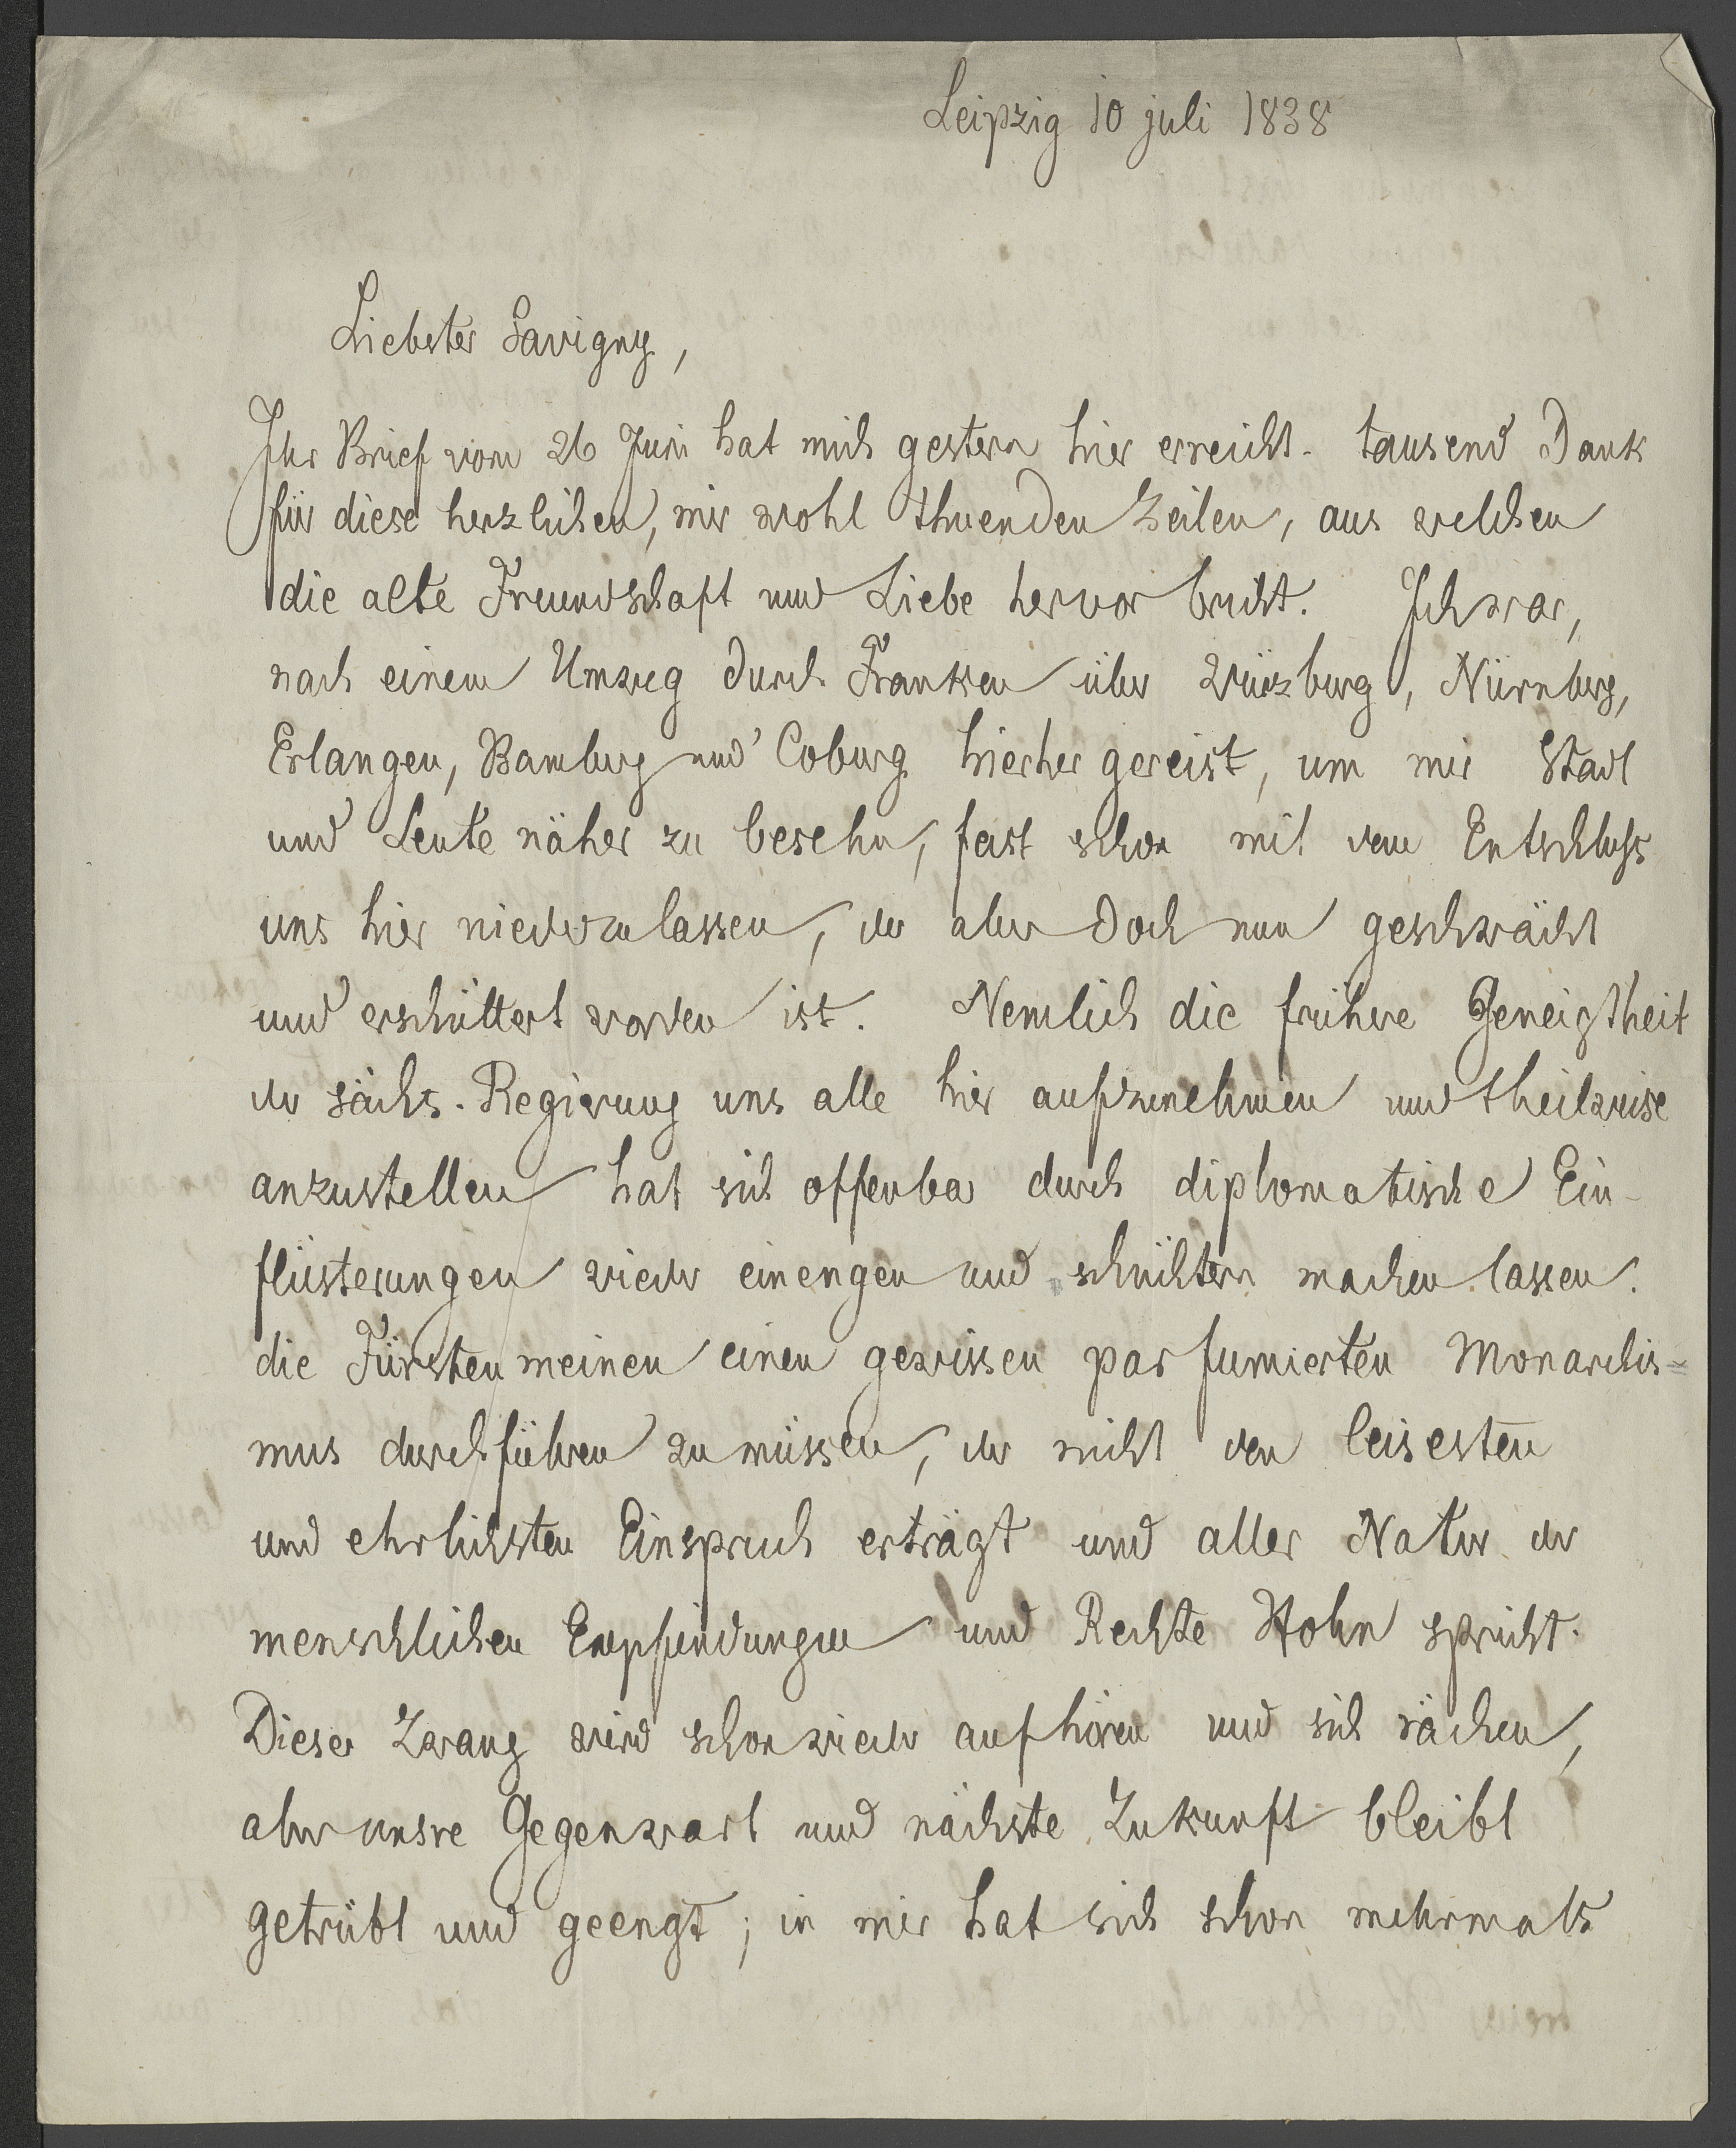 Leipzig 10 juli 1838
Liebster Savigny,
Ihr Brief vom 26 Juni hat mich gestern hier erreicht. tausend Dank
für diese herzlichen, mir wohl thuenden Zeilen, aus welchen
die alte Freundschaft und Liebe hervor bricht. Ich war,
nach einem Umzug durch Franken über Würzburg, Nürnberg,
Erlangen, Bamberg und Coburg hierher gereist, um mir Stadt
und Leute näher zu besehn, fast schon mit dem Entschluß
uns hier niederzulassen, der aber doch nun geschwächt
und erschüttert worden ist. Nemlich die frühere Geneigtheit
der sächs. Regierung uns alle hier aufzunehmen und theilweise
anzustellen hat sich offenbar durch diplomatische Ein-
flüsterungen wieder einengen und schüchtern machen lassen.
die Fürsten meinen einen gewissen parfumierten Monarchis=
mus durchführen zu müssen, der nicht den leisesten
und ehrlichsten Einspruch erträgt und aller Natur der
menschlichen Empfindungen und Rechte Hohn spricht.
Dieser Zwang wird schon wieder aufhören und sich rächen,
aber unsre Gegenwart und nächste Zukunft bleibt
getrübt und geengt; in mir hat sich schon mehrmals